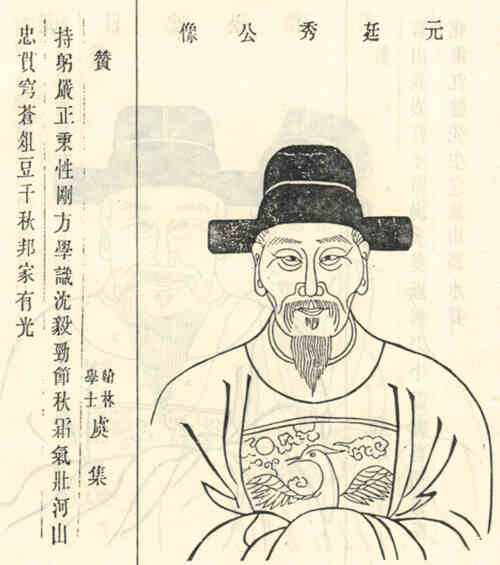 元廷秀公像
贊 翰林學士 虞集
持躬嚴正秉性剛方學識沈毅勁節秋霜氣壯河山
忠貫穹蒼俎豆千秋邦家有光